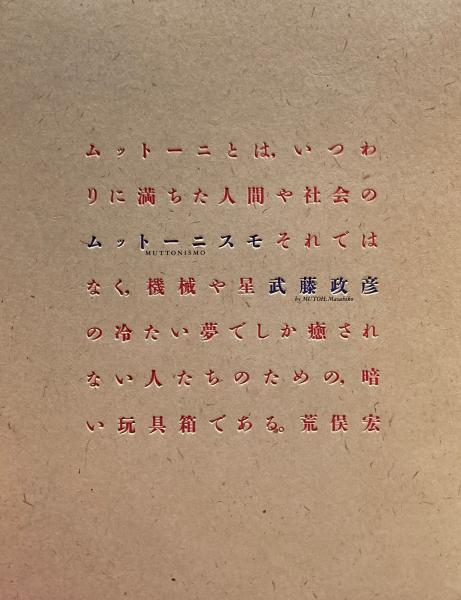 ムットーニとは，いつわ
りに満ちた人間や社会の
ムットーニスモそれでは
MUTTONISMO
なく，機械や星武藤政彦
by MUTOH, Masahiko
の冷たい夢でしか癒され
ない人たちのための，暗
い玩具箱である。荒俣宏